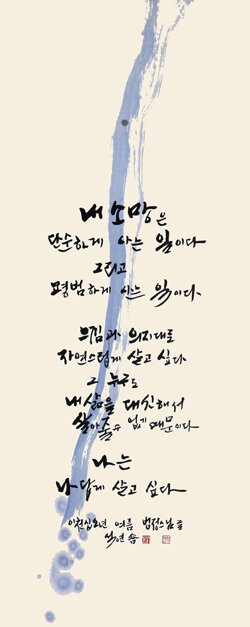 내 소망은
단순하게 사는 일이다
그리고
평범하게 사는 일이다.
느낌과 의지대로
자연스럽게 살고 싶다
그 누구도
내 삶을 대신해서
살아줄 수 없기 때문이다
나는
나답게 살고 싶다
이천십오년 여름 법정스님 글